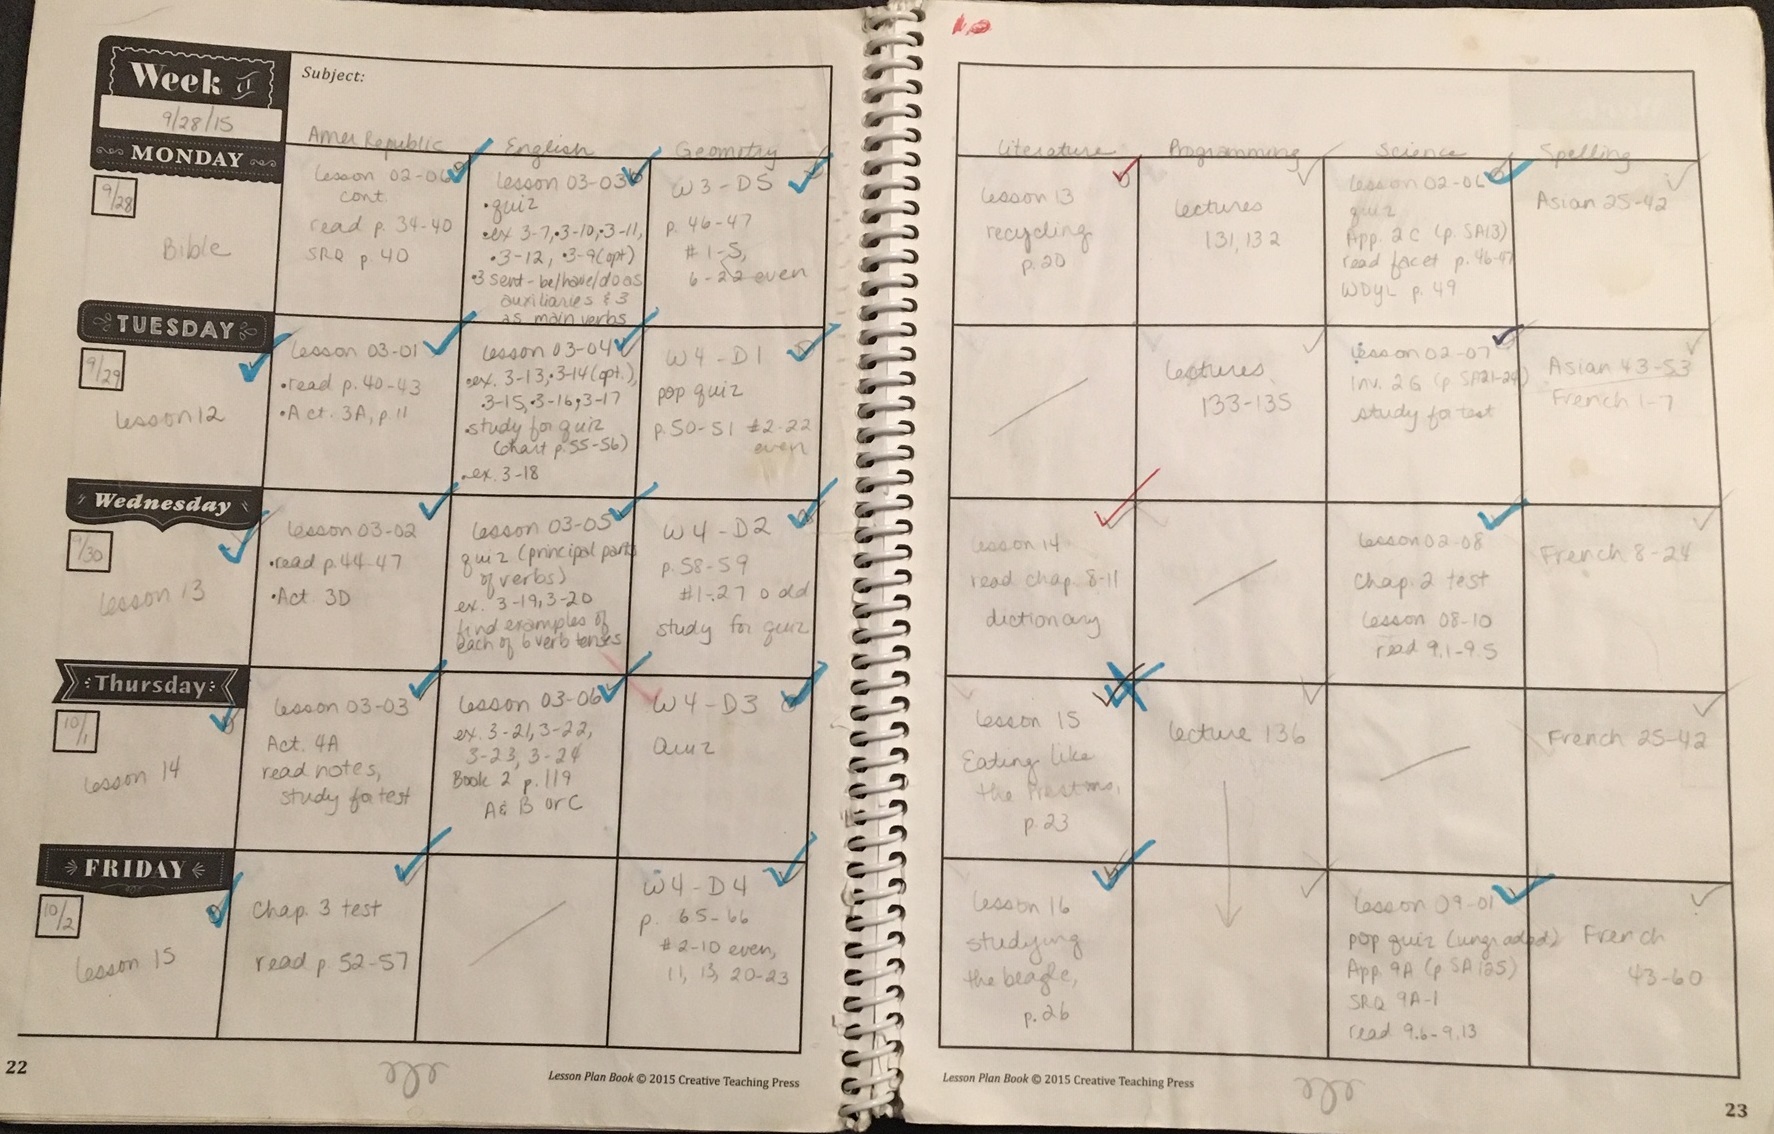 Week of
9/28/15
Subject:
Amer Republic
English
Geometry
Literature
Programming
Science
Spelling
MONDAY
9/28
Bible
Lesson 02-06
cont.
read p. 34-40
SRQ p. 40
Lesson 03-03
•quiz
•ex 3-7, •3-10, •3-11,
•3-12, •3-9 (opt)
•3 sent - be/have/do as
auxiliaries & 3
as main verbs
W3-D5
p. 46-47
#1-5,
6-22 even
Lesson 13
recycling
p. 20
Lectures
131, 132
Lesson 02-06
quiz
App. 2C (p. SA13)
read facet p. 46-47
WDYL p. 49
Asian 25-42
TUESDAY
9/29
Lesson 12
Lesson 03-01
•read p. 40-43
•Act. 3A, p. 11
Lesson 03-04
•ex. 3-13, •3-14 (opt.),
•3-15, •3-16, •3-17
•study for quiz
(chart p. 55-56)
•ex. 3-18
W4-D1
pop quiz
p. 50-51 #2-22
even
Lectures
133-135
Lesson 02-07
Inv. 2G (p SA21-24)
study for test
Asian 43-53
French 1-7
Wednesday
9/30
Lesson 13
Lesson 03-02
•read p. 44-47
•Act. 3D
Lesson 03-05
quiz (principal parts
of verbs)
ex. 3-19, 3-20
find examples of
each of 6 verb tenses
W4-D2
p. 58-59
#1-27 odd
study for quiz
Lesson 14
read chap. 8-11
dictionary
Lesson 02-08
Chap. 2 test
Lesson 08-10
read 9.1-9.5
French 8-24
Thursday
10/1
Lesson 14
Lesson 03-03
Act. 4A
read notes,
study for test
Lesson 03-06
ex. 3-21, 3-22,
3-23, 3-24
Book 2 p. 119
A & B or C
W4-D3
Quiz
Lesson 15
Eating like
the
p. 23
Lecture 136
French 25-42
FRIDAY
10/2
Lesson 15
Chap. 3 test
read p. 52-57
W4-D4
p. 65-66
#2-10 even,
11, 13, 20-23
Lesson 16
studying
the beagle,
p. 26
Lesson 09-01
pop quiz (ungraded)
App. 9A (p SA125)
SRQ 9A-1
read 9.6-9.13
French
43-60
22
Lesson Plan Book © 2015 Creative Teaching Press
Lesson Plan Book © 2015 Creative Teaching Press
23